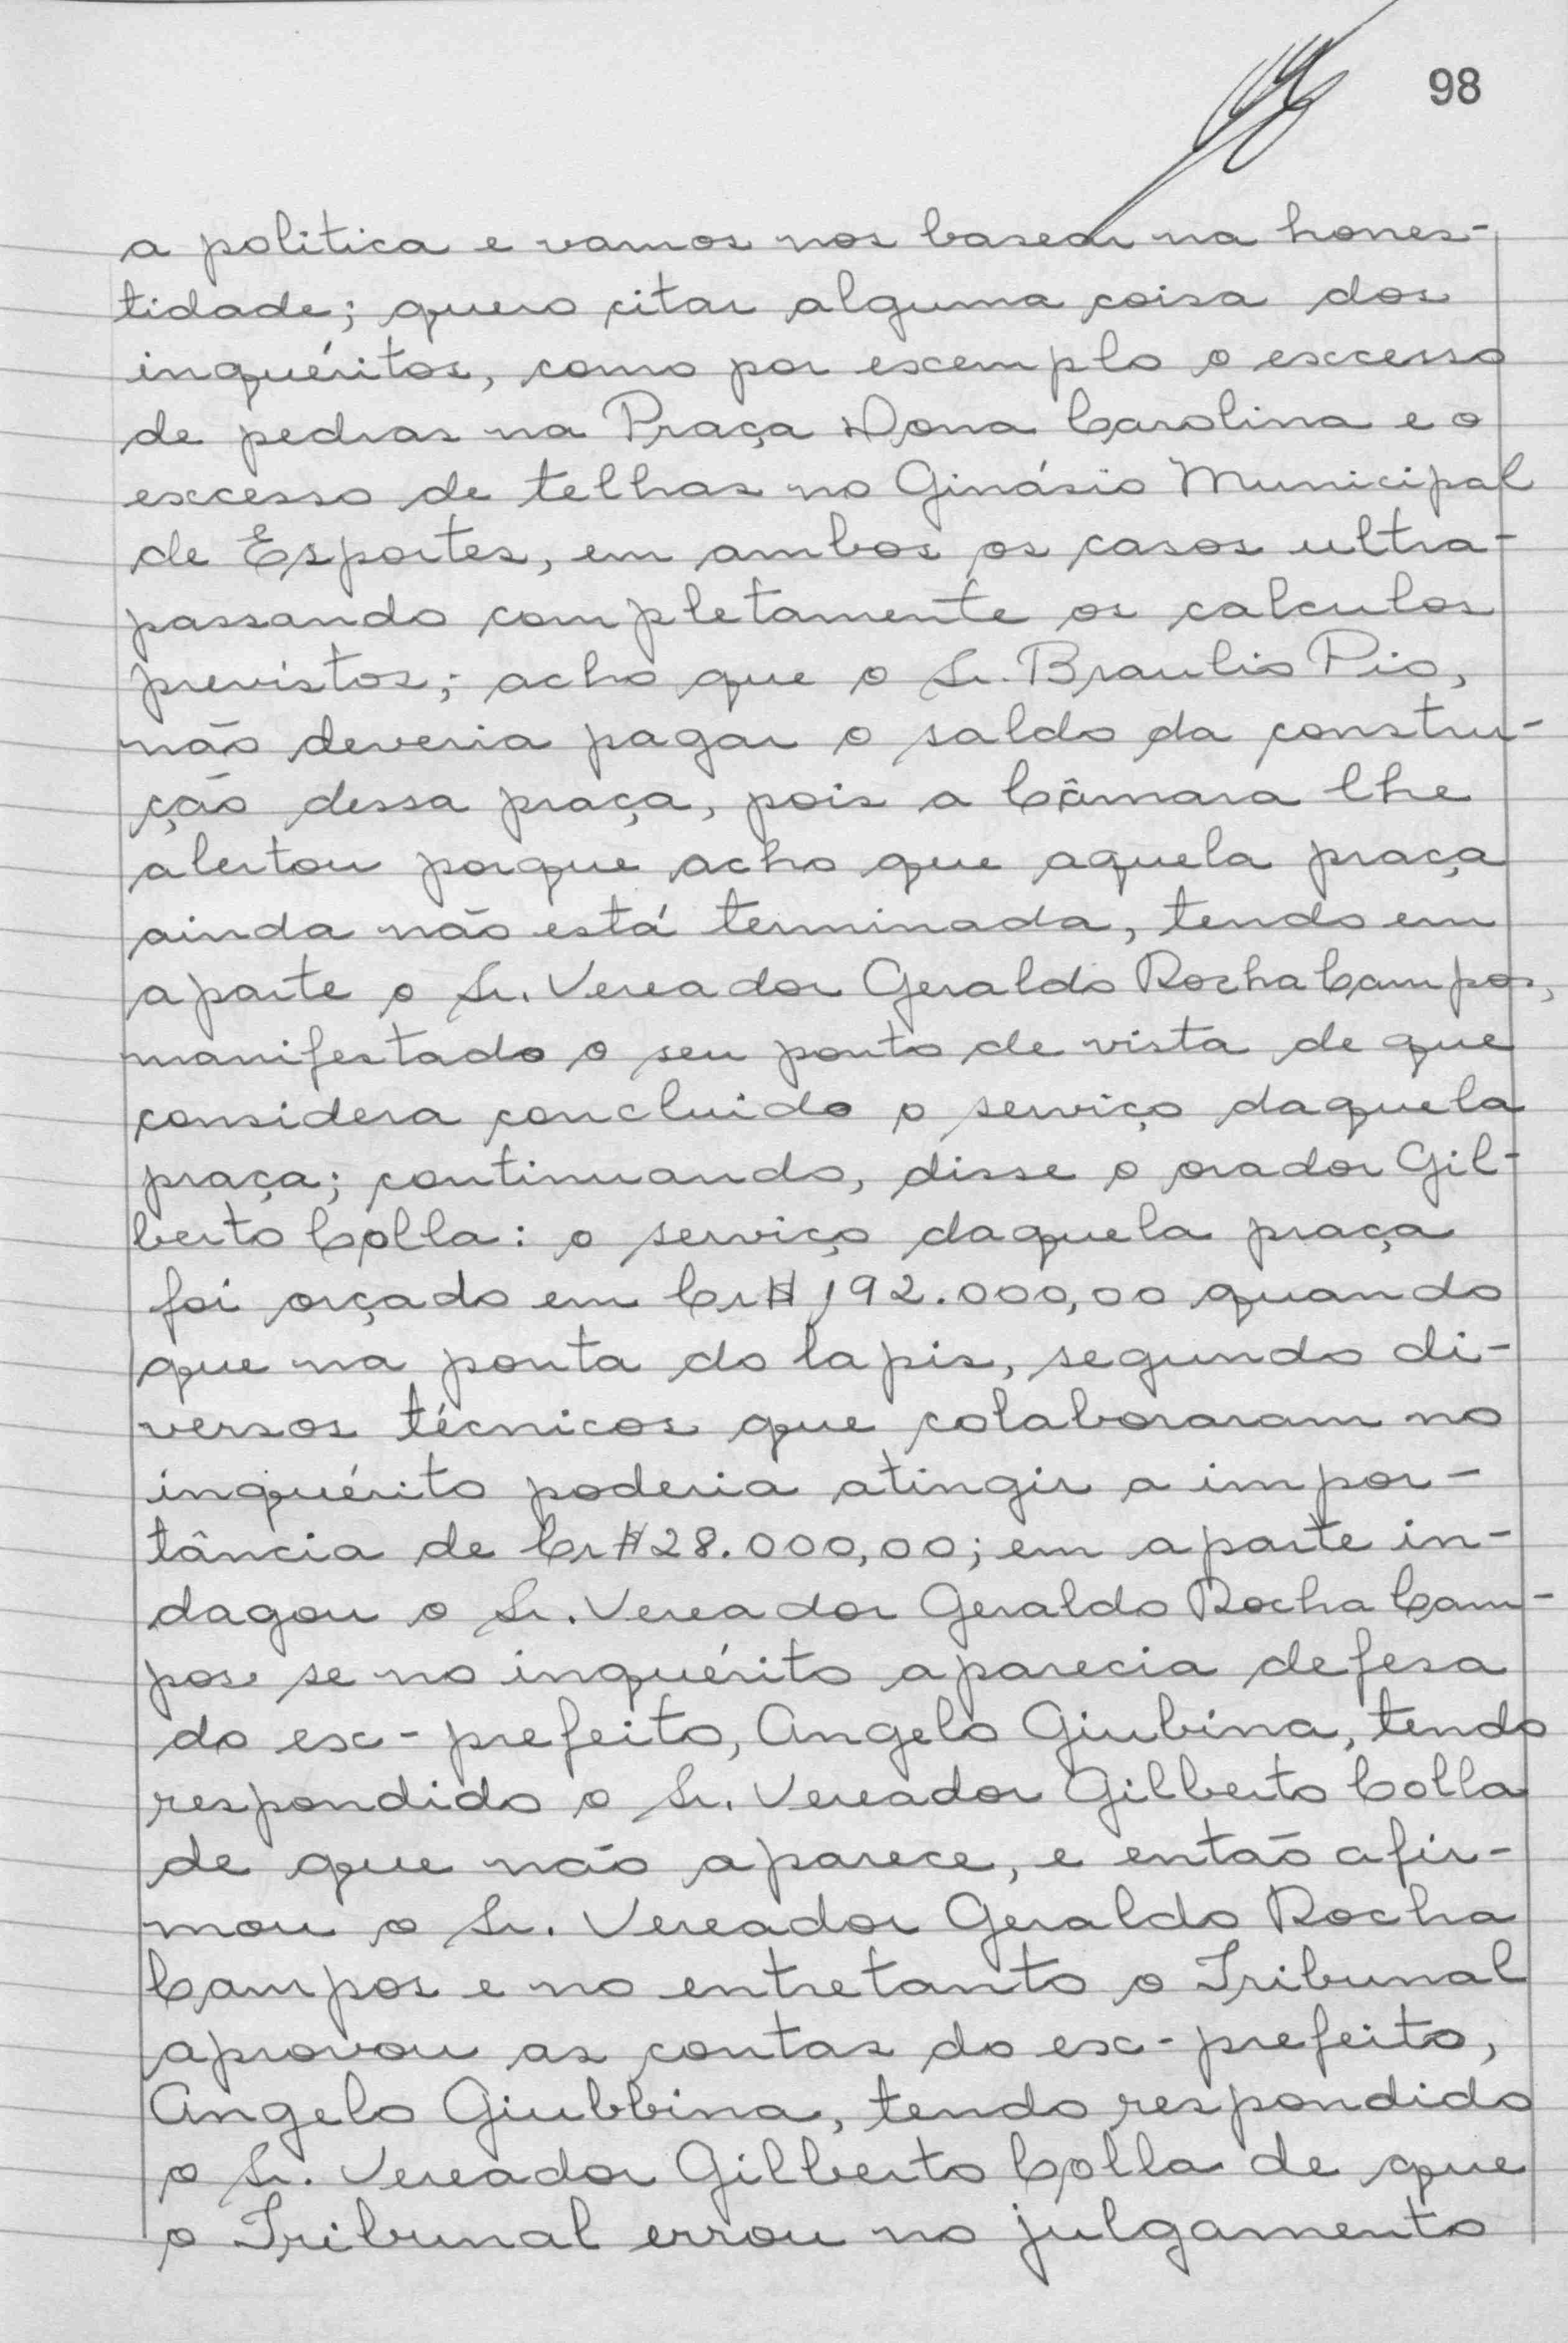 98
a politica e vamos nos basear na hones-
tidade; quero citar alguma coisa dos
inquéritos, como por exemplo o excesso
de pedras na Praça Dona Carolina e o
excesso de telhas no Ginásio Municipal
de Esportes, em ambos os casos ultra-
passando completamente os calculos
previstos; acho que o Sr. Braulio Pio,
não deveria pagar o saldo da constru-
ção dessa praça, pois a Câmara lhe
alertou porque acho que aquela praça
ainda não está terminada, tendo em
aparte o Sr. Vereador Geraldo Rocha Campos,
manifestado o seu ponto de vista de que
considera concluido o serviço daquela
praça; continuando, disse o orador Gil-
berto Colla: o serviço daquela praça
foi orçado em Cr$ 192.000,00 quando
que na ponta do lapis, segundo di-
versos técnicos que colaboraram no
inquérito poderia atingir a impor-
tância de Cr$ 28.000,00; em aparte in-
dagou o Sr. Vereador Geraldo Rocha Cam-
pos se no inquérito aparecia defesa
do ex-prefeito, Angelo Giubina, tendo
respondido o Sr. Vereador Gilberto Colla
de que não aparece, e então afir-
mou o Sr. Vereador Geraldo Rocha
Campos e no entretanto o Tribunal
aprovou as contas do ex-prefeito,
Angelo Giubbina, tendo respondido
o Sr. Vereador Gilberto Colla de que
o Tribunal errou no julgamento